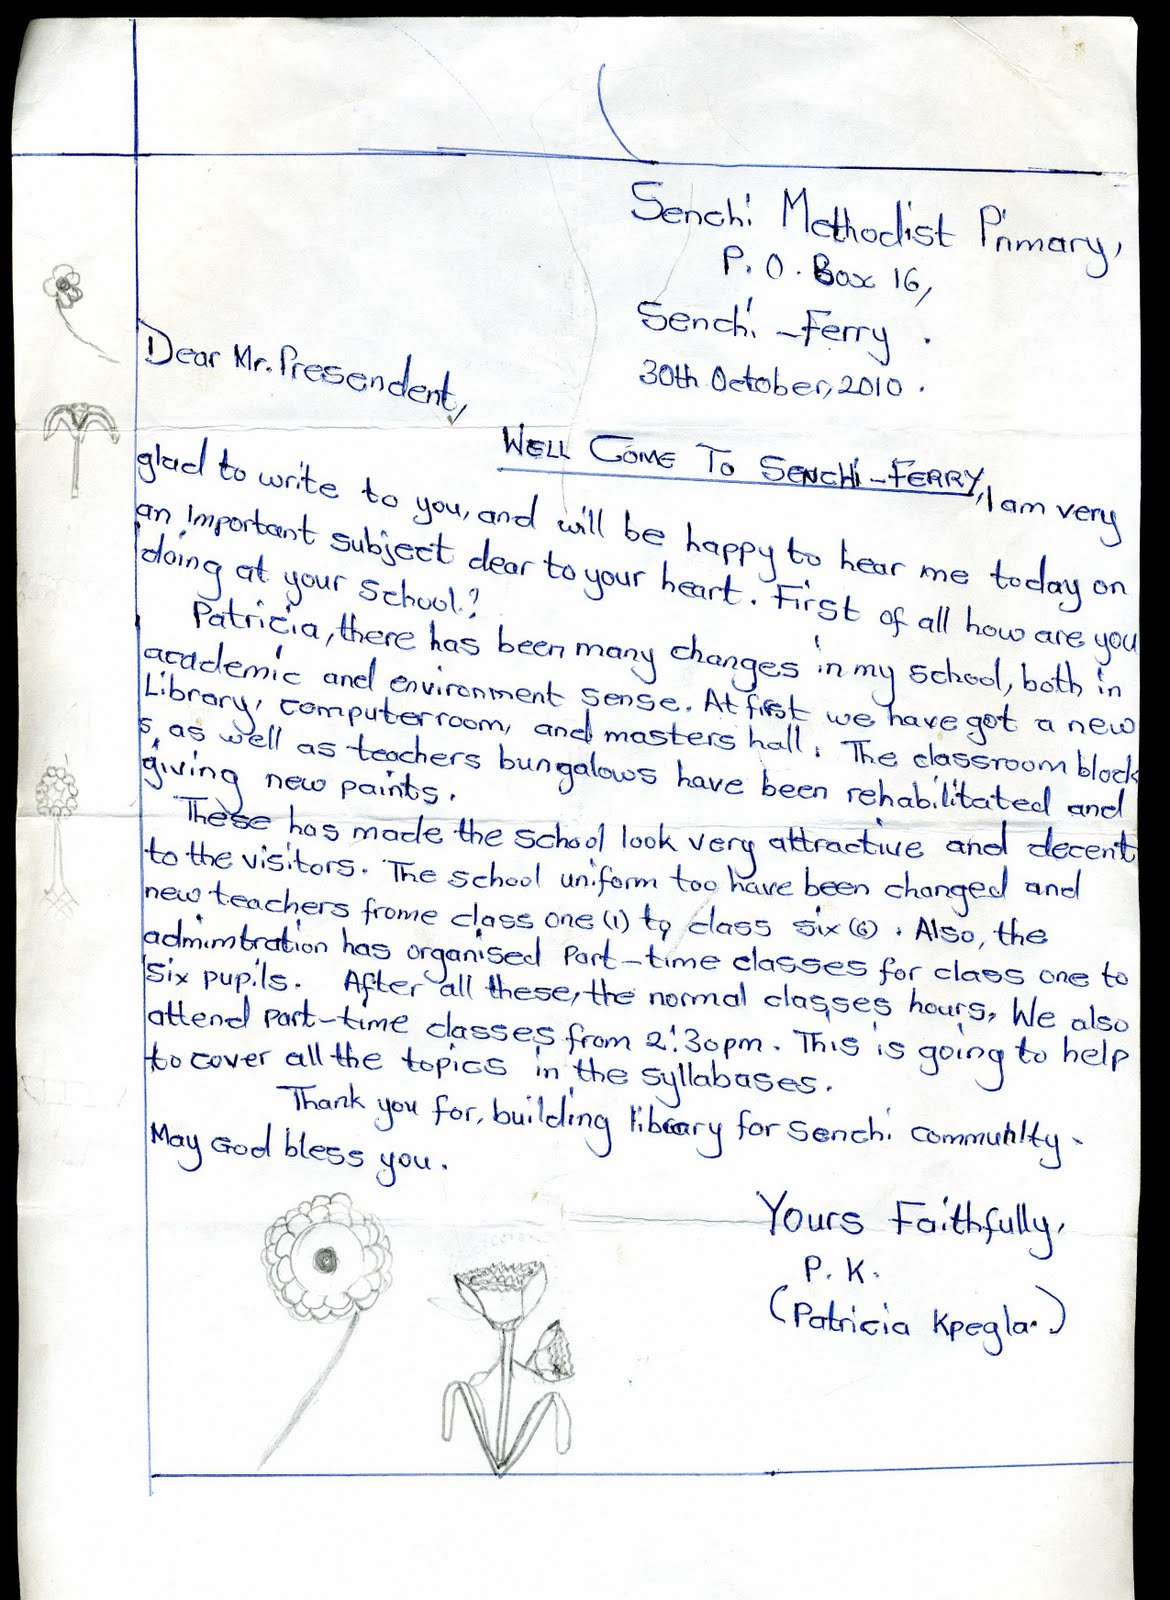 Senchi Methodist Primary,
P. O. Box 16,
Senchi -Ferry.
30th October, 2010.
Dear Mr. Presendent,
WELL COME TO SENCHI-FERRY, I am very
glad to write to you, and will be happy to hear me today on
an important subject dear to your heart. First of all how are you
doing at your school?
Patricia, there has been many changes in my school, both in
academic and environment sense. At first we have got a new
Library, computer room, and masters hall. The classroom block
s, as well as teachers bungalows have been rehabilitated and
giving new paints.
These has made the school look very attractive and decent
to the visitors. The school uniform too have been changed and
new teachers frome class one (1) to class six (6). Also, the
admimtration has organised part-time classes for class one to
six pupils. After all these, the normal classes hours, We also
attend part-time classes from 2:30pm. This is going to help
to cover all the topics in the syllabases.
Thank you for, building library for senchi community.
May God bless you.
Yours Faithfully,
P. K.
(Patricia Kpegla.)